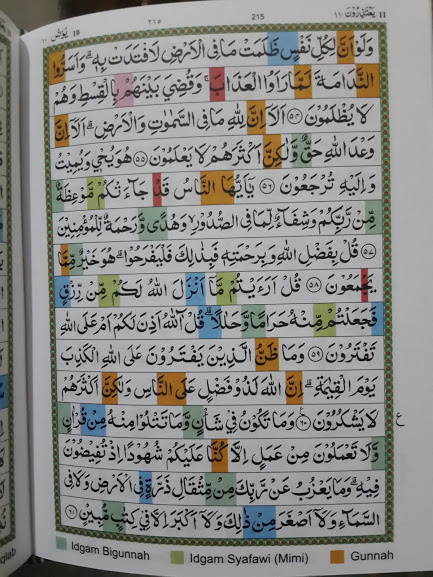 ١١ يَعْتَذِرُوْنَ 11
215
٢١٥
10 يُوْنُسْ ١٠
وَلَوْ اَنَّ لِكُلِّ نَفْسٍ ظَلَمَتْ مَا فِى الْاَرْضِ لَافْتَدَتْ بِهٖۗ وَاَسَرُّوا
النَّدَامَةَ لَمَّا رَاَوُا الْعَذَابَۚ وَقُضِيَ بَيْنَهُمْ بِالْقِسْطِ وَهُمْ
لَا يُظْلَمُوْنَ ٥٤ اَلَآ اِنَّ لِلّٰهِ مَا فِى السَّمٰوٰتِ وَالْاَرْضِۗ اَلَآ اِنَّ
وَعْدَ اللّٰهِ حَقٌّ وَّلٰكِنَّ اَكْثَرَهُمْ لَا يَعْلَمُوْنَ ٥٥ هُوَ يُحْيٖ وَيُمِيْتُ
وَاِلَيْهِ تُرْجَعُوْنَ ٥٦ يٰٓاَيُّهَا النَّاسُ قَدْ جَاۤءَتْكُمْ مَّوْعِظَةٌ
مِّنْ رَّبِّكُمْ وَشِفَاۤءٌ لِّمَا فِى الصُّدُوْرِۙ وَهُدًى وَّرَحْمَةٌ لِّلْمُؤْمِنِيْنَ
٥٧ قُلْ بِفَضْلِ اللّٰهِ وَبِرَحْمَتِهٖ فَبِذٰلِكَ فَلْيَفْرَحُوْاۗ هُوَ خَيْرٌ مِّمَّا
يَجْمَعُوْنَ ٥٨ قُلْ اَرَءَيْتُمْ مَّآ اَنْزَلَ اللّٰهُ لَكُمْ مِّنْ رِّزْقٍ
فَجَعَلْتُمْ مِّنْهُ حَرَامًا وَّحَلٰلًاۗ قُلْ اٰۤللّٰهُ اَذِنَ لَكُمْ اَمْ عَلَى اللّٰهِ
تَفْتَرُوْنَ ٥٩ وَمَا ظَنُّ الَّذِيْنَ يَفْتَرُوْنَ عَلَى اللّٰهِ الْكَذِبَ
يَوْمَ الْقِيٰمَةِۗ اِنَّ اللّٰهَ لَذُوْ فَضْلٍ عَلَى النَّاسِ وَلٰكِنَّ اَكْثَرَهُمْ
لَا يَشْكُرُوْنَ ٦٠ وَمَا تَكُوْنُ فِيْ شَأْنٍ وَّمَا تَتْلُوْا مِنْهُ مِنْ قُرْاٰنٍ
ع
وَّلَا تَعْمَلُوْنَ مِنْ عَمَلٍ اِلَّا كُنَّا عَلَيْكُمْ شُهُوْدًا اِذْ تُفِيْضُوْنَ
فِيْهِۗ وَمَا يَعْزُبُ عَنْ رَّبِّكَ مِنْ مِّثْقَالِ ذَرَّةٍ فِى الْاَرْضِ وَلَا فِى
السَّمَاۤءِ وَلَآ اَصْغَرَ مِنْ ذٰلِكَ وَلَآ اَكْبَرَ اِلَّا فِيْ كِتٰبٍ مُّبِيْنٍ ٦١
Idgam Bigunnah
Idgam Syafawi (Mimi)
Gunnah